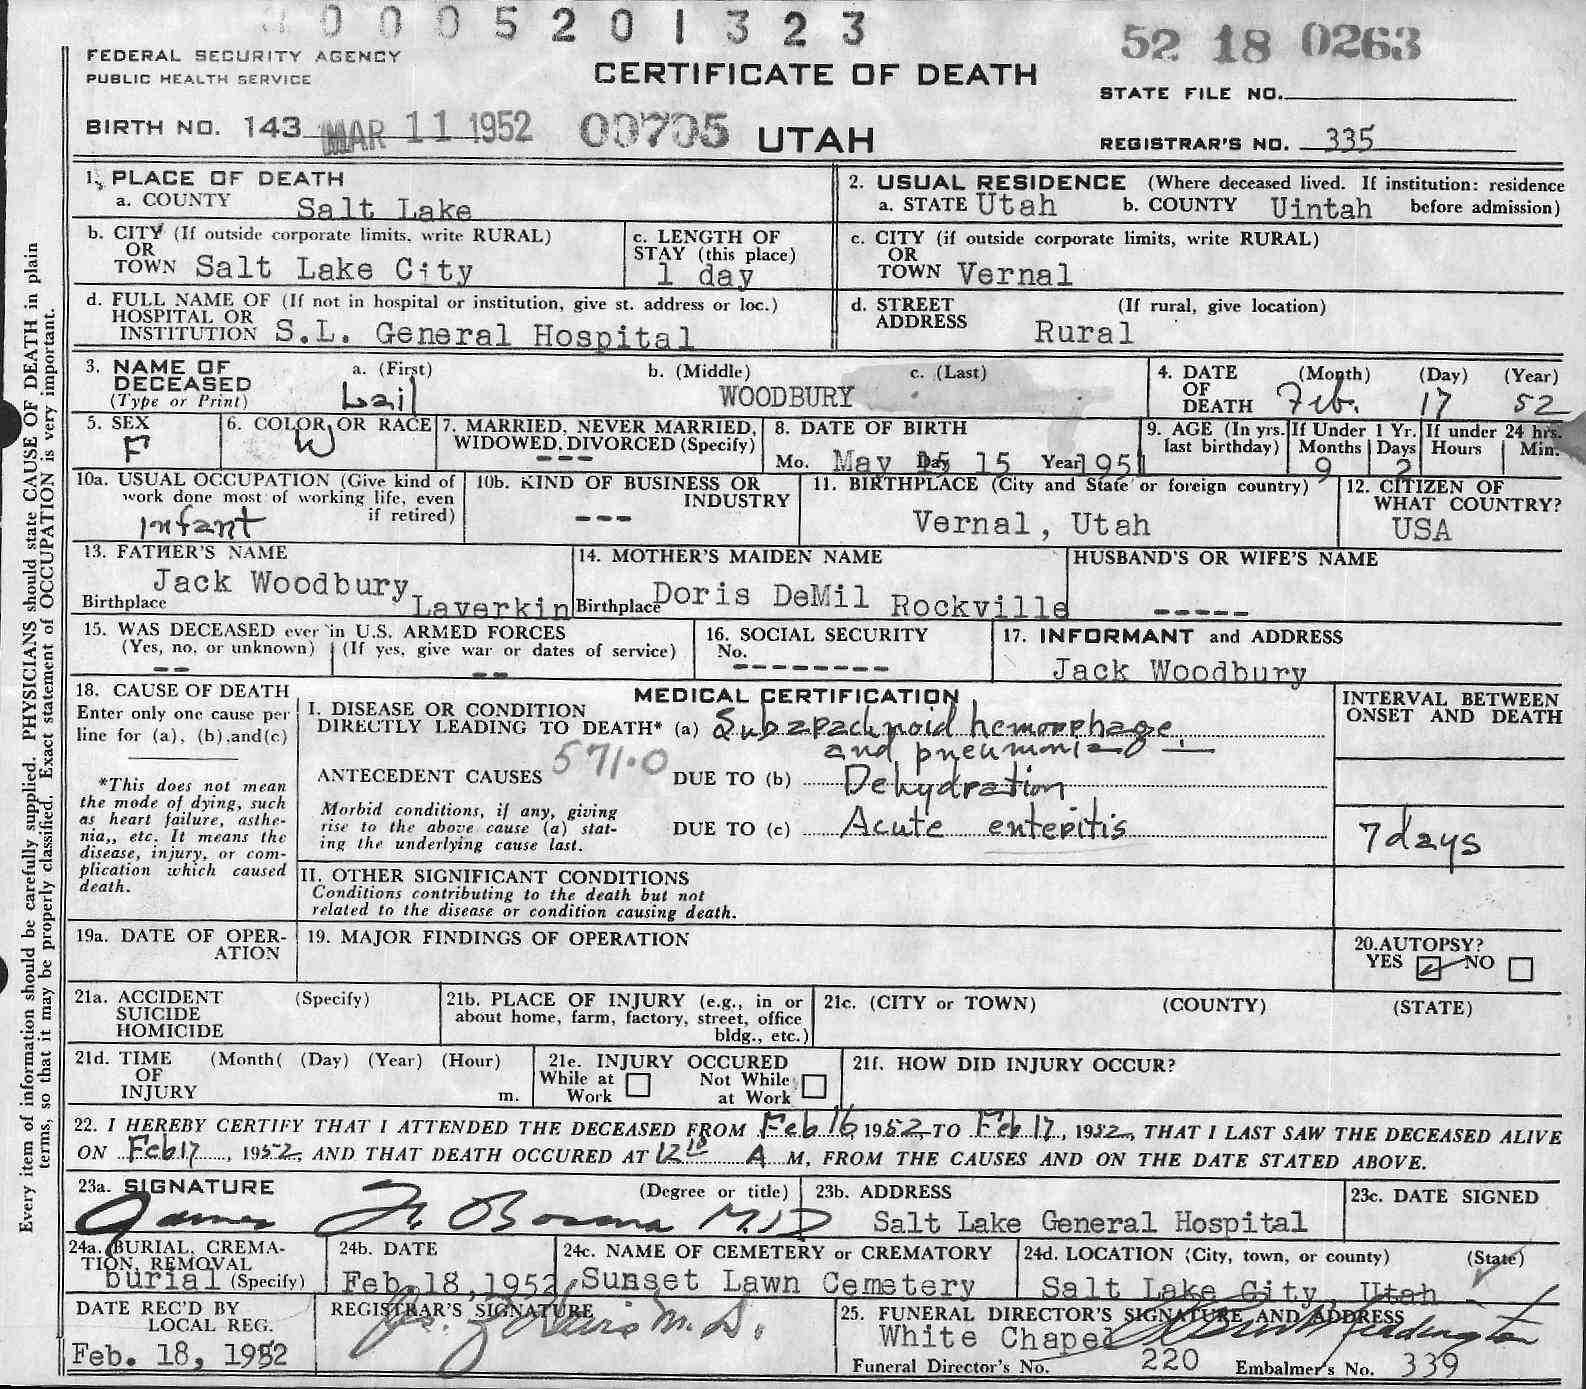 0005201323
52 18 0263
FEDERAL SECURITY AGENCY
PUBLIC HEALTH SERVICE
CERTIFICATE OF DEATH
STATE FILE NO.
BIRTH NO. 143 MAR 11 1952 00705 UTAH
REGISTRAR'S NO. 335
1. PLACE OF DEATH
a. COUNTY Salt Lake
2. USUAL RESIDENCE (Where deceased lived. If institution: residence before admission)
a. STATE Utah b. COUNTY Uintah
b. CITY (If outside corporate limits, write RURAL)
OR
TOWN Salt Lake City
c. LENGTH OF
STAY (this place)
1 day
c. CITY (if outside corporate limits, write RURAL)
OR
TOWN Vernal
d. FULL NAME OF (If not in hospital or institution, give st. address or loc.)
HOSPITAL OR
INSTITUTION S.L. General Hospital
d. STREET (If rural, give location)
ADDRESS Rural
3. NAME OF
DECEASED
(Type or Print)
a. (First) b. (Middle) c. (Last)
Lail WOODBURY
4. DATE
OF
DEATH
(Month) (Day) (Year)
Feb. 17 52
5. SEX
F
6. COLOR OR RACE
W
7. MARRIED, NEVER MARRIED,
WIDOWED, DIVORCED (Specify)
---
8. DATE OF BIRTH
Mo. May Day 15 Year 1951
9. AGE (In yrs.
last birthday)
If Under 1 Yr.
Months Days
9 2
If under 24 hrs.
Hours Min.
10a. USUAL OCCUPATION (Give kind of
work done most of working life, even
if retired)
Infant
10b. KIND OF BUSINESS OR
INDUSTRY
---
11. BIRTHPLACE (City and State or foreign country)
Vernal, Utah
12. CITIZEN OF
WHAT COUNTRY?
USA
13. FATHER'S NAME
Jack Woodbury
Birthplace Laverkin
14. MOTHER'S MAIDEN NAME
Doris DeMil
Birthplace Rockville
HUSBAND'S OR WIFE'S NAME
-----
15. WAS DECEASED ever in U.S. ARMED FORCES
(Yes, no, or unknown) (If yes, give war or dates of service)
-- --
16. SOCIAL SECURITY
No.
--------
17. INFORMANT and ADDRESS
Jack Woodbury
18. CAUSE OF DEATH
Enter only one cause per
line for (a), (b), and (c)
*This does not mean
the mode of dying, such
as heart failure, asthe-
nia,, etc. It means the
disease, injury, or com-
plication which caused
death.
MEDICAL CERTIFICATION
I. DISEASE OR CONDITION
DIRECTLY LEADING TO DEATH* (a) Subarachnoid hemorrhage
and pneumonia
ANTECEDENT CAUSES 571.0 DUE TO (b) Dehydration
Morbid conditions, if any, giving
rise to the above cause (a) stat-
ing the underlying cause last.
DUE TO (c) Acute enteritis
INTERVAL BETWEEN
ONSET AND DEATH
7 days
II. OTHER SIGNIFICANT CONDITIONS
Conditions contributing to the death but not
related to the disease or condition causing death.
19a. DATE OF OPER-
ATION
19. MAJOR FINDINGS OF OPERATION
20. AUTOPSY?
YES NO
21a. ACCIDENT (Specify)
SUICIDE
HOMICIDE
21b. PLACE OF INJURY (e.g., in or
about home, farm, factory, street, office
bldg., etc.)
21c. (CITY or TOWN) (COUNTY) (STATE)
21d. TIME (Month( (Day) (Year) (Hour)
OF
INJURY m.
21e. INJURY OCCURED
While at Work Not While at Work
21f. HOW DID INJURY OCCUR?
22. I HEREBY CERTIFY THAT I ATTENDED THE DECEASED FROM Feb 16, 1952, TO Feb 17, 1952, THAT I LAST SAW THE DECEASED ALIVE
ON Feb 17, 1952, AND THAT DEATH OCCURED AT 12 10 A M, FROM THE CAUSES AND ON THE DATE STATED ABOVE.
23a. SIGNATURE (Degree or title)
James M.D
23b. ADDRESS
Salt Lake General Hospital
23c. DATE SIGNED
24a. BURIAL, CREMA-
TION, REMOVAL
burial (Specify)
24b. DATE
Feb. 18, 1952
24c. NAME OF CEMETERY or CREMATORY
Sunset Lawn Cemetery
24d. LOCATION (City, town, or county) (State)
Salt Lake City, Utah
DATE REC'D BY
LOCAL REG.
Feb. 18, 1952
REGISTRAR'S SIGNATURE
M. D.
25. FUNERAL DIRECTOR'S SIGNATURE AND ADDRESS
White Chapel
Funeral Director's No. 220 Embalmer's No. 339
Every item of information should be carefully supplied. PHYSICIANS should state CAUSE OF DEATH in plain
terms, so that it may be properly classified. Exact statement of OCCUPATION is very important.